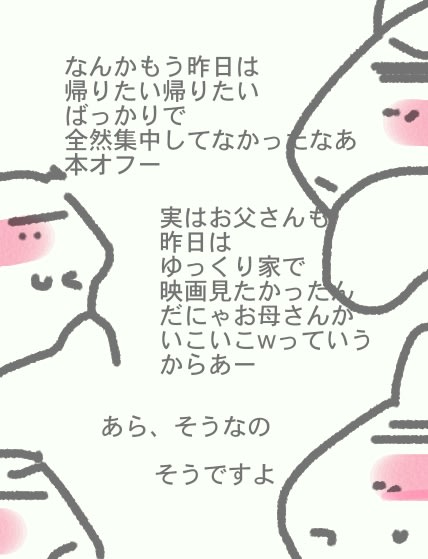 なんかもう昨日は
帰りたい帰りたい
ばっかりで
全然集中してなかったなあ
本オフー
実はお父さんも
昨日は
ゆっくり家で
映画見たかったん
だにゃお母さんが
いこいこwっていう
からあー
あら、そうなの
そうですよ